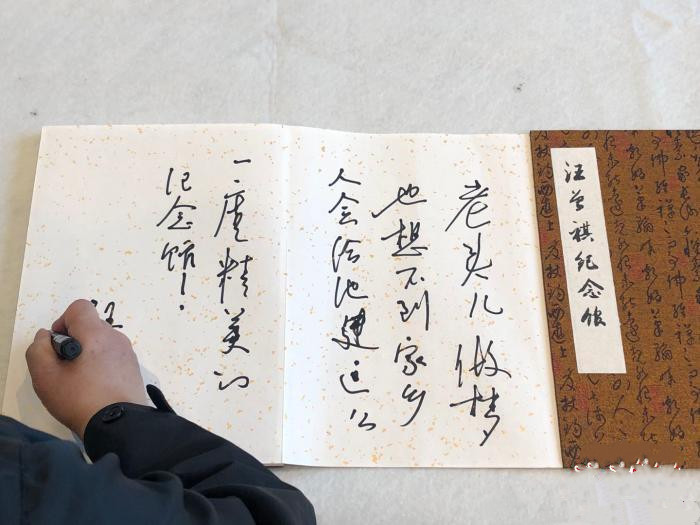 汪曾祺纪念馆
老头儿做梦
也想不到家乡
人会给他建这么
一座精美的
纪念馆！